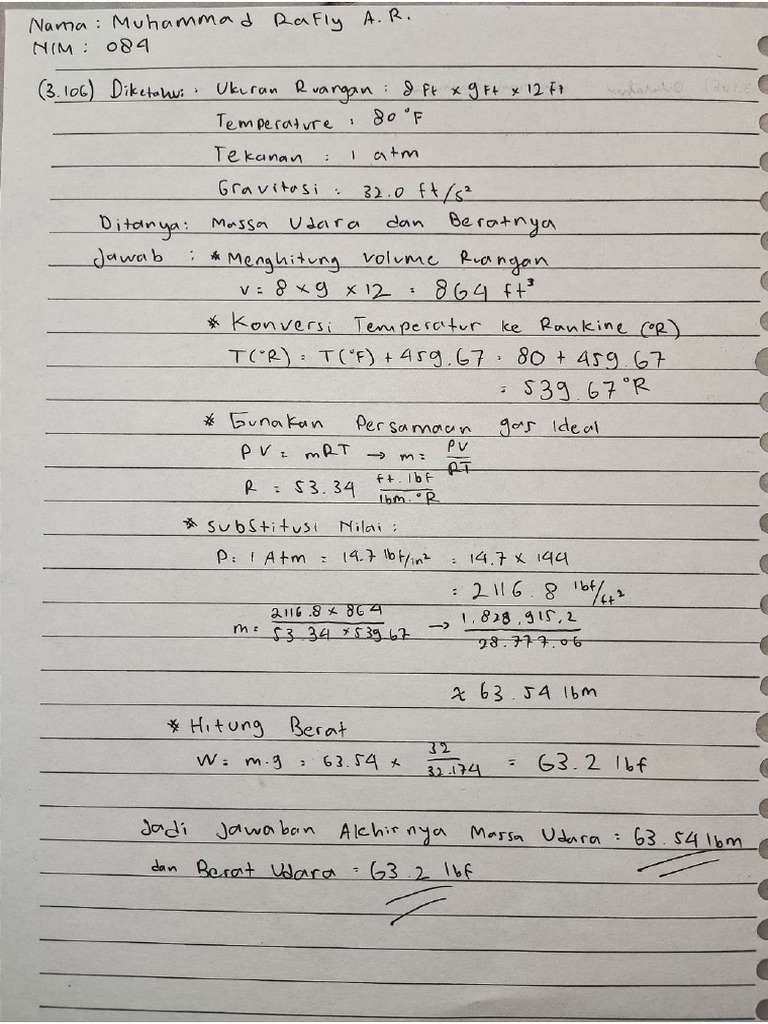 Nama : Muhammad Rafly A.R.
NIM : 084
(3.106) Diketahui : Ukuran Ruangan : 8 ft x 9 ft x 12 ft
Temperature : 80 °F
Tekanan : 1 atm
Gravitasi : 32.0 ft/s²
Ditanya : Massa Udara dan Beratnya
Jawab : * Menghitung Volume Ruangan
V = 8 x 9 x 12 = 864 ft³
* Konversi Temperatur ke Rankine (°R)
T(°R) = T(°F) + 459.67 = 80 + 459.67
= 539.67 °R
* Gunakan Persamaan gas Ideal
PV = mRT → m = PV/RT
R = 53.34 ft.lbf/lbm.°R
* Substitusi Nilai :
P = 1 Atm = 14.7 lbf/in² = 14.7 x 144
= 2116.8 lbf/ft²
m = 2116.8 x 864 / 53.34 x 539.67 → 1.828.915,2 / 28.777.06
≈ 63.54 lbm
* Hitung Berat
W = m.g = 63.54 x 32/32.174 = 63.2 lbf
Jadi Jawaban Akhirnya Massa Udara = 63.54 lbm
dan Berat Udara = 63.2 lbf